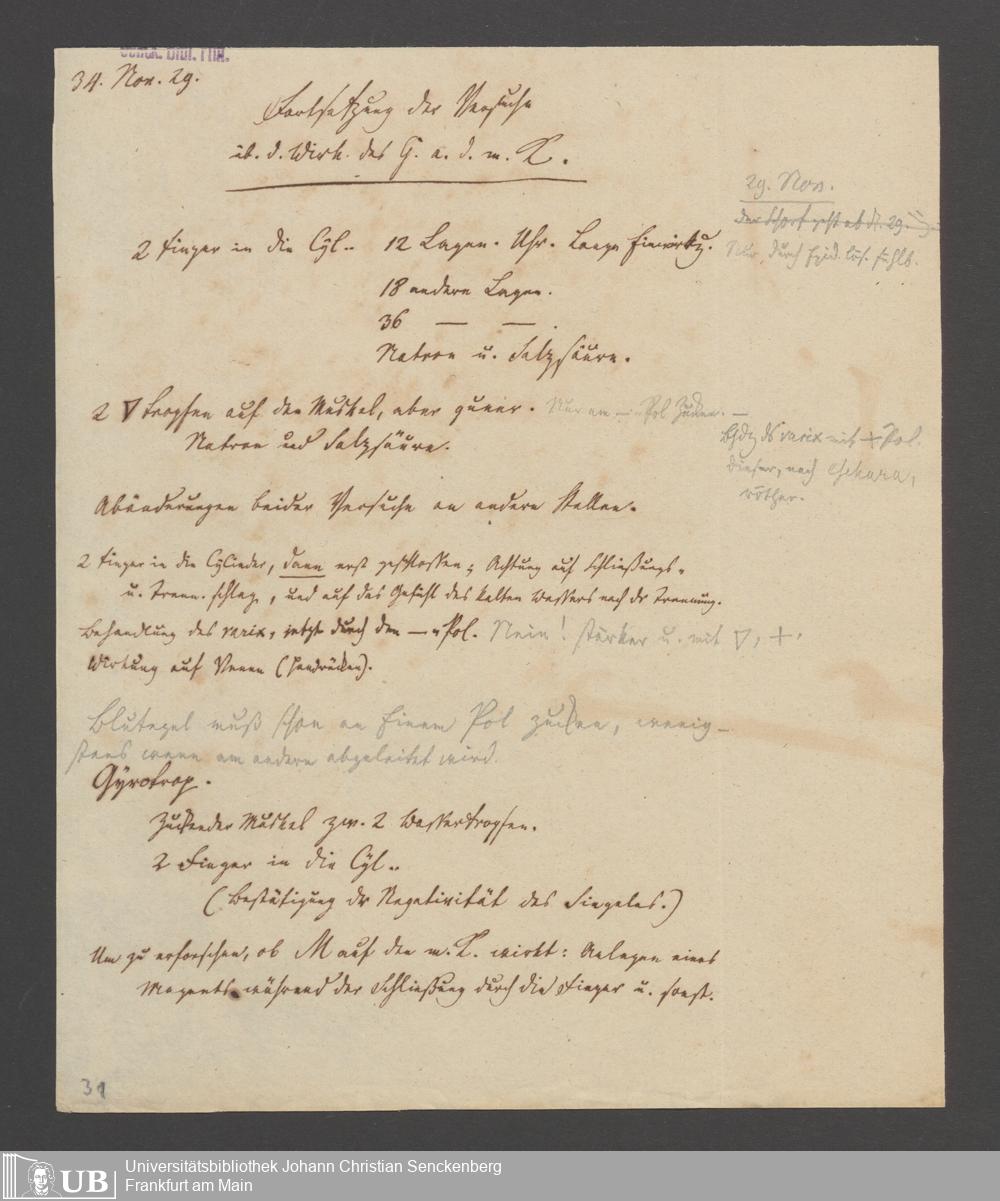 34. Nov. 29.
Fortsetzung der Versuche
üb. d. Wirk. des G. a. d. m. K.
29. Nov.
der Schorf geht ab d. 29.
Nur durch Epid. lös. fühlb.
2 Finger in die Cyl.. 12 Lagen. Uhr. Lange Einwirkg.
18 andere Lagen.
36 — —.
Natron u. Salzsäure.
2 ▽ Tropfen auf den Muskel, aber queer. Nur am — Pol Zucken. —
Natron und Salzsäure.
varix mit + Pol.
Dieser, nach Eschara,
röther.
Abänderungen beider Versuche an andern Stellen.
2 Finger in die Cylinder, dann erst geschlossen; Achtung auf Schließungs-
u. Trenn. schlag, und auf das Gefühl des kalten Wassers nach dr Trennung.
Behandlung des varix, jetzt durch den — Pol. Nein! stärker u. mit ▽, +.
Wirkung auf Venen (Handrücken).
Blutegel muß schon an Einem Pol zucken, wenig-
stens wenn am andern abgeleitet wird.
Gyrotrop.
Zuckender Muskel zw. 2 Wassertropfen.
2 Finger in die Cyl..
(Bestätigung dr Negativität des Siegels.)
Um zu erforschen, ob M auf den m. K. wirkt: Anlegen eines
Magnets während der Schließung durch die Finger u. sonst.
31
Universitätsbibliothek Johann Christian Senckenberg
Frankfurt am Main
UB